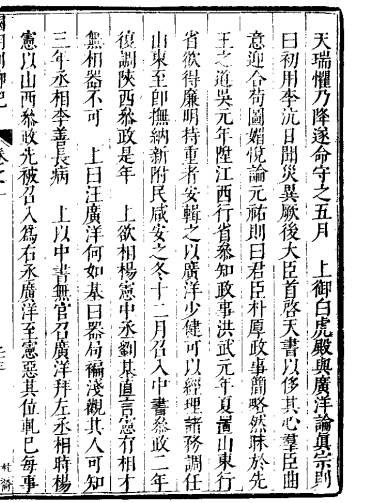 天瑞懼乃降遂命守之五月　上御白虎殿與廣洋論眞宗則
曰初用李沆日聞災異厥後大臣首啓天書以侈其心羣臣曲
意迎合苟圖媚悅論元祐則曰君臣朴原政事簡略然昧於先
王之道吳元年陞江西行省叅知政事洪武元年夏置山東行
省欲得廉明持重者安輯之以廣洋少健可以經理諸務調任
山東至卽撫納新附民咸安之冬十二月召入中書叅政二年
復調陝西叅政是年　上欲相楊憲中丞劉基直言憲有相才
無相器不可　上曰汪廣洋何如基曰器句褊淺觀其人可知
三年丞相李善長病　上以中書無官召廣洋拜左丞相時楊
憲以山西叅政先被召入爲右丞廣洋至憲惡其位軋巳每事
卷之一